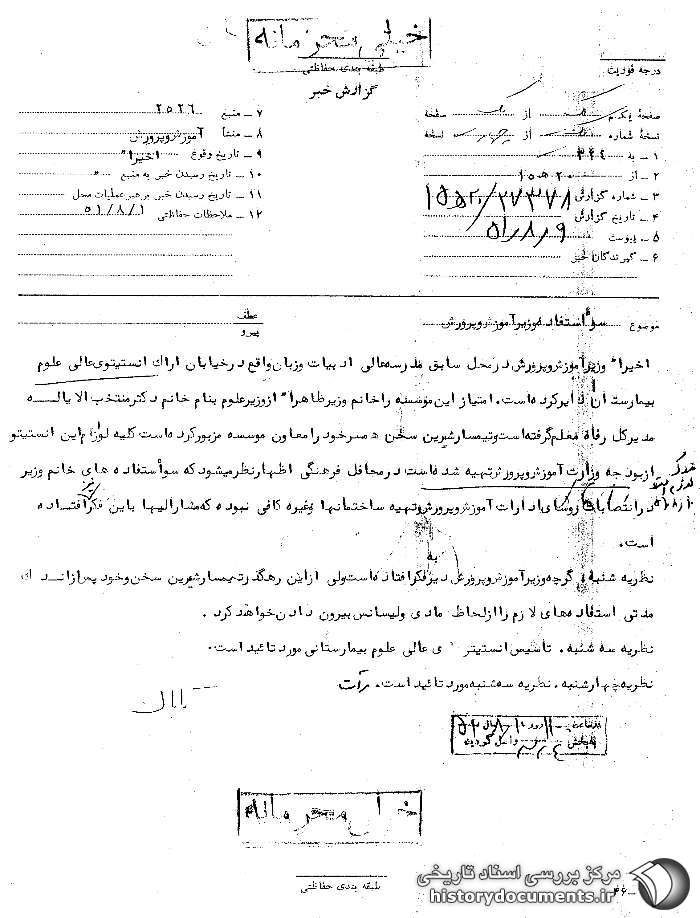 خیلی محرمانه
طبقه بندی حفاظتی
درجه فوریت
گزارش خبر
صفحه یکم از یک صفحه
نسخه شماره از نسخه
۱ ـ به ۳۴۱
۲ ـ از
۳ ـ شماره گزارش ۲۷۳۷۸/
۴ ـ تاریخ گزارش ۵۱/۸/۹
۵ ـ پیوست
۶ ـ گیرندگان خبر
۷ ـ منبع ۲۵۲۶
۸ ـ منشأ آموزش و پرورش
۹ ـ تاریخ وقوع اخیرا"
۱۰ ـ تاریخ رسیدن خبر به منبع "
۱۱ ـ تاریخ رسیدن خبر به رهبر عملیات محل
۱۲ ـ ملاحظات حفاظتی ۵۱/۸/۱
موضوع سوء استفاده وزیر آموزش و پرورش
عطف
پیرو
اخیرا" وزیر آموزش و پرورش در محل سابق مدرسه عالی ادبیات و زبان واقع در خیابان اراک انستیتوی عالی علوم
بیمارستان دایر کرده است. امتیاز این موسسه را خانم وزیر ظاهرا" از وزیر علوم بنام خانم دکتر منتخب الایاله
مدیر کل رفاه معلم گرفته است و تیمسار شیرین سخن همسر خود را معاون موسسه مزبور کرده است کلیه لوازم این انستیتو
از بودجه وزارت آموزش و پرورش تهیه شده است در محافل فرهنگی اظهار نظر میشود که سوء استفاده های خانم وزیر
در انتصابات روسای ادارات آموزش و پرورش و تهیه ساختمانها و غیره کافی نبوده که مشارالیها باین فکر نیز افتاده
است.
نظریه شنبه. گرچه وزیر آموزش و پرورش دیر به فکر افتاده است ولی از این رهگذر تیمسار شیرین سخن و خود پس از اندک
مدتی استفاده های لازم را از لحاظ مادی و لیسانس بیرون دادن خواهد کرد.
نظریه سه شنبه. تأسیس انستیتوی عالی علوم بیمارستانی مورد تائید است.
نظریه چهارشنبه. نظریه سه شنبه مورد تائید است.
خیلی محرمانه
طبقه بندی حفاظتی
مرکز بررسی اسناد تاریخی
historydocuments.ir